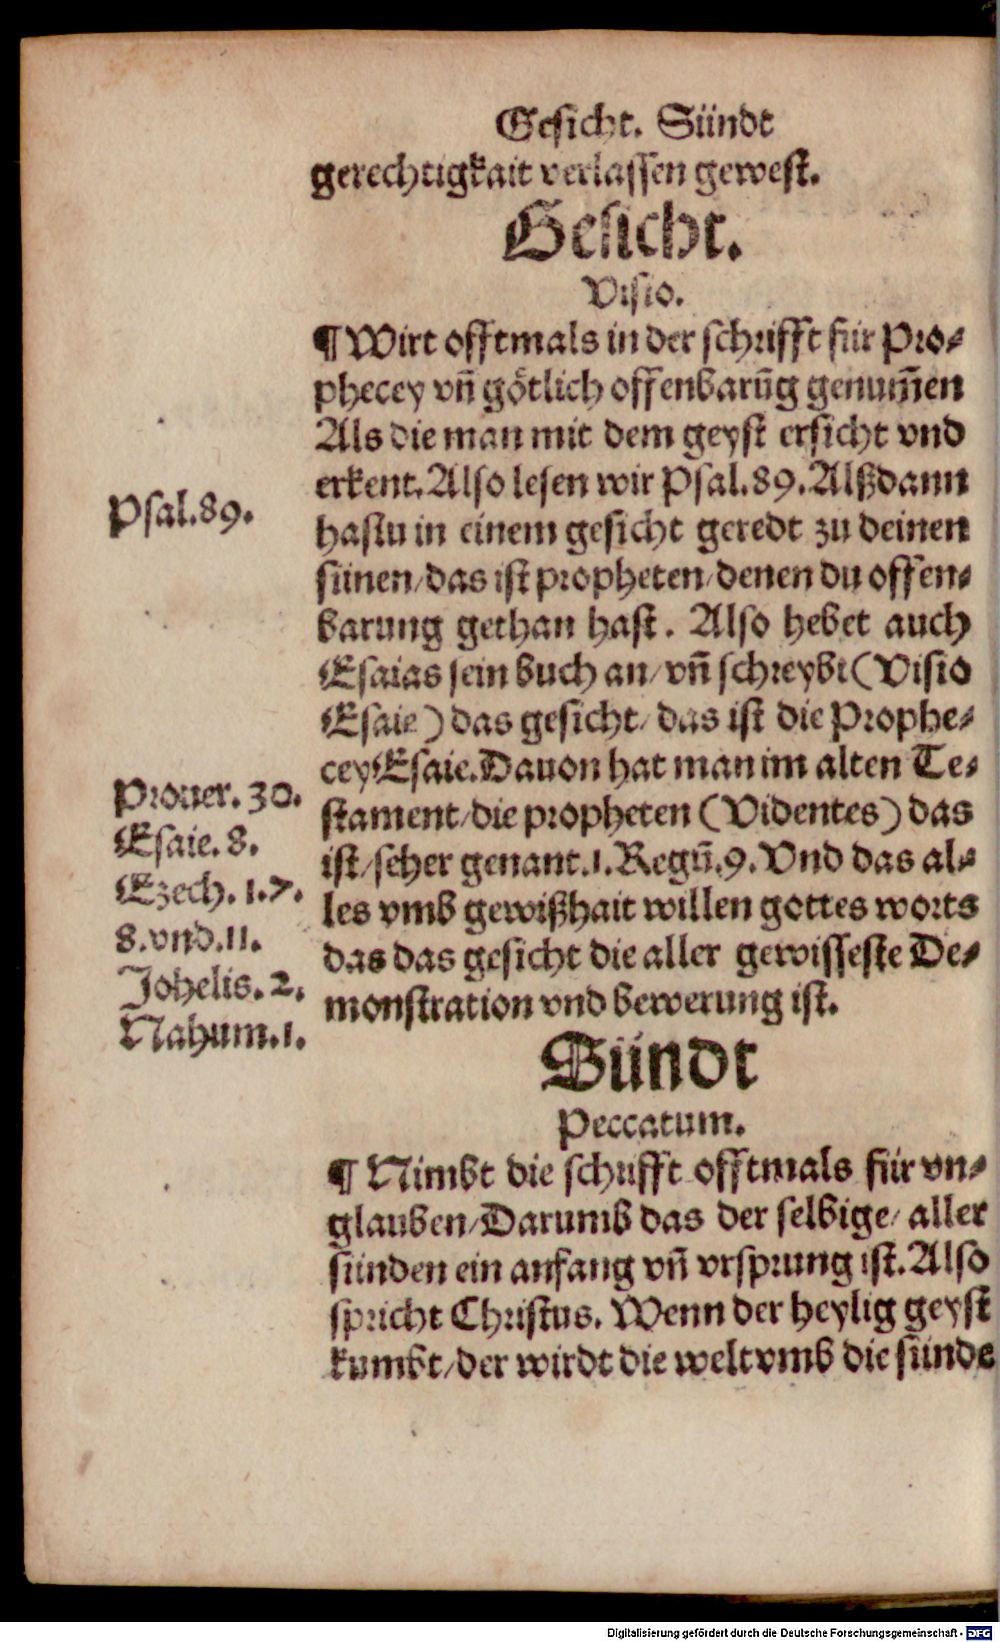 Gesicht. Sündt
gerechtigkait verlassen gewest.
Gesicht.
Visio.
¶ Wirt offtmals in der schrifft für Pro⸗
phecey vñ götlich offenbarũg genum̃en
Als die man mit dem geyst ersicht vnd
erkent. Also lesen wir Psal. 89. Alßdann
hastu in einem gesicht geredt zu deinen
sünen/ das ist propheten/ denen du offen⸗
barung gethan hast. Also hebet auch
Esaias sein buch an/ vñ schreybt (Visio
Esaie) das gesicht/ das ist die Prophe⸗
cey Esaie. Dauon hat man im alten Te⸗
stament/ die propheten (Videntes) das
ist/ seher genant. 1. Regũ. 9. Vnd das al⸗
les vmb gewißhait willen gottes worts
das das gesicht die aller gewisseste De⸗
monstration vnd bewerung ist.
Psal. 89.
Prouer. 30.
Esaie. 8.
Ezech. 1. 7.
8. vnd. 11.
Johelis. 2.
Nahum. 1.
Sündt
Peccatum.
¶ Nimbt die schrifft offtmals für vn⸗
glauben/ Darumb das der selbige/ aller
sünden ein anfang vñ vrsprung ist. Also
spricht Christus. Wenn der heylig geyst
kumbt/ der wirdt die welt vmb die sünde
Digitalisierung gefördert durch die Deutsche Forschungsgemeinschaft - DFG